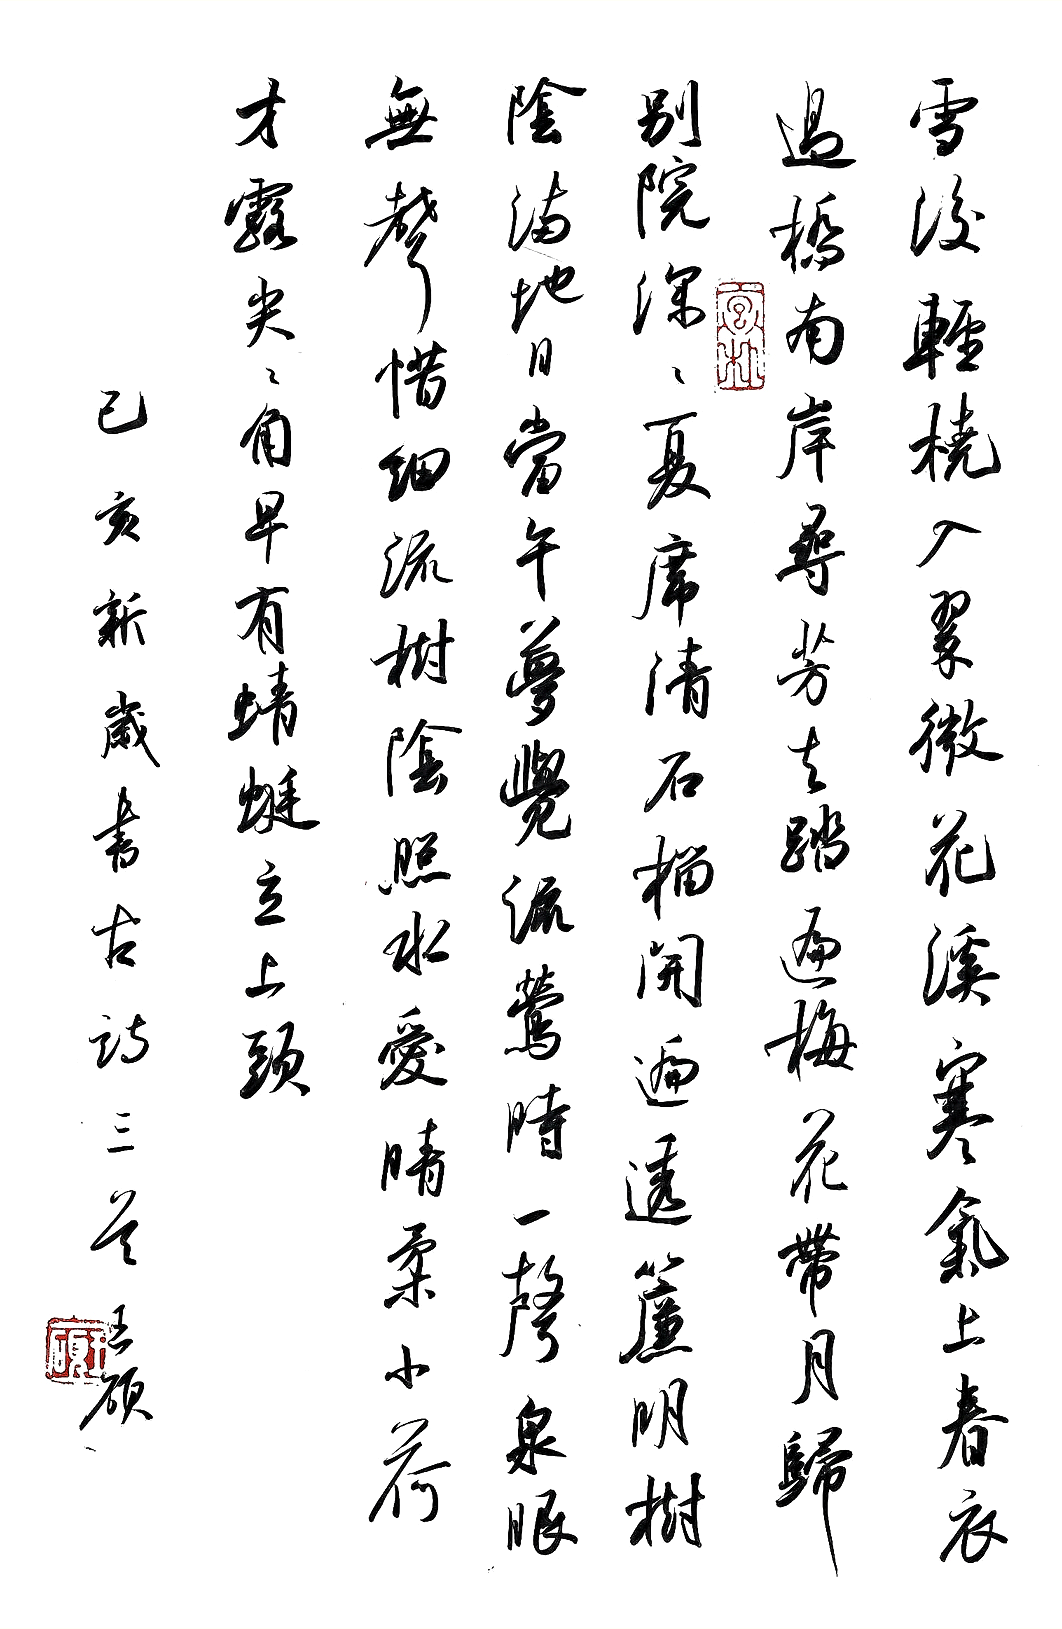 雪後輕橈入翠微花溪寒氣上春衣
過橋南岸尋芳去踏遍梅花帶月歸
别院深〻夏席清石榴開遍透簾明樹
陰滿地日當午夢覺流鶯時一聲泉眼
無聲惜細流樹陰照水愛晴柔小荷
才露尖〻角早有蜻蜓立上頭
己亥新歲書古詩三首 王碩